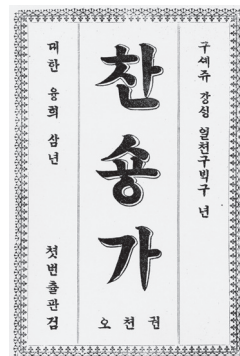 구셰쥬 강싱 일쳔구빅구 년
찬숑가
오 쳔 권
대한 융희 삼년
첫번츌판검